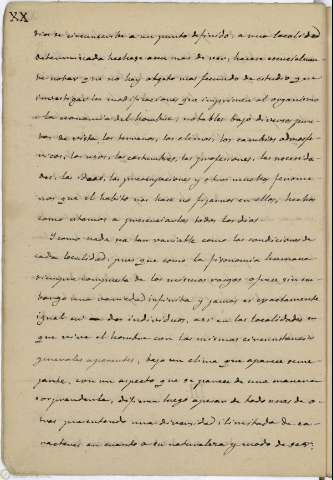 XX
dio se circunscribe a un punto definido, a una localidad
determinada hechase aun mas de ver, hacese conocidamen-
te notar que no hay objeto mas fecundo de estudio, que
investigar las modificaciones que imprimen al organismo
la economia del hombre; notables bajo diversos pun-
tos de vista, los terrenos, los climas, los cambios admosfe-
ricos, los usos, las costumbres, las profesiones, las necesida-
des, las ideas, las preocupaciones y otros muchos fenome-
nos que el habito nos hace no fijarnos en ellos, hechos
como estamos a presenciarlos todos los dias.
Y como nada ya tan variable como las condiciones de
cada localidad, pues que como la fisonomia humana
siempre compuesta de los mismos rasgos ofrece sin em-
bargo una variedad infinita y jamas es exactamente
igual en dos individuos, asi en las localidades en
que vive el hombre con las mismas circunstancias
generales aparentes, bajo un clima que aparece seme-
jante, con un aspecto que se parece de una manera
sorprendente, difieren luego apesar de todo unas de o-
tras presentando una diversidad ilimitada de ca-
racteres en cuanto a su naturaleza y modo de ser.